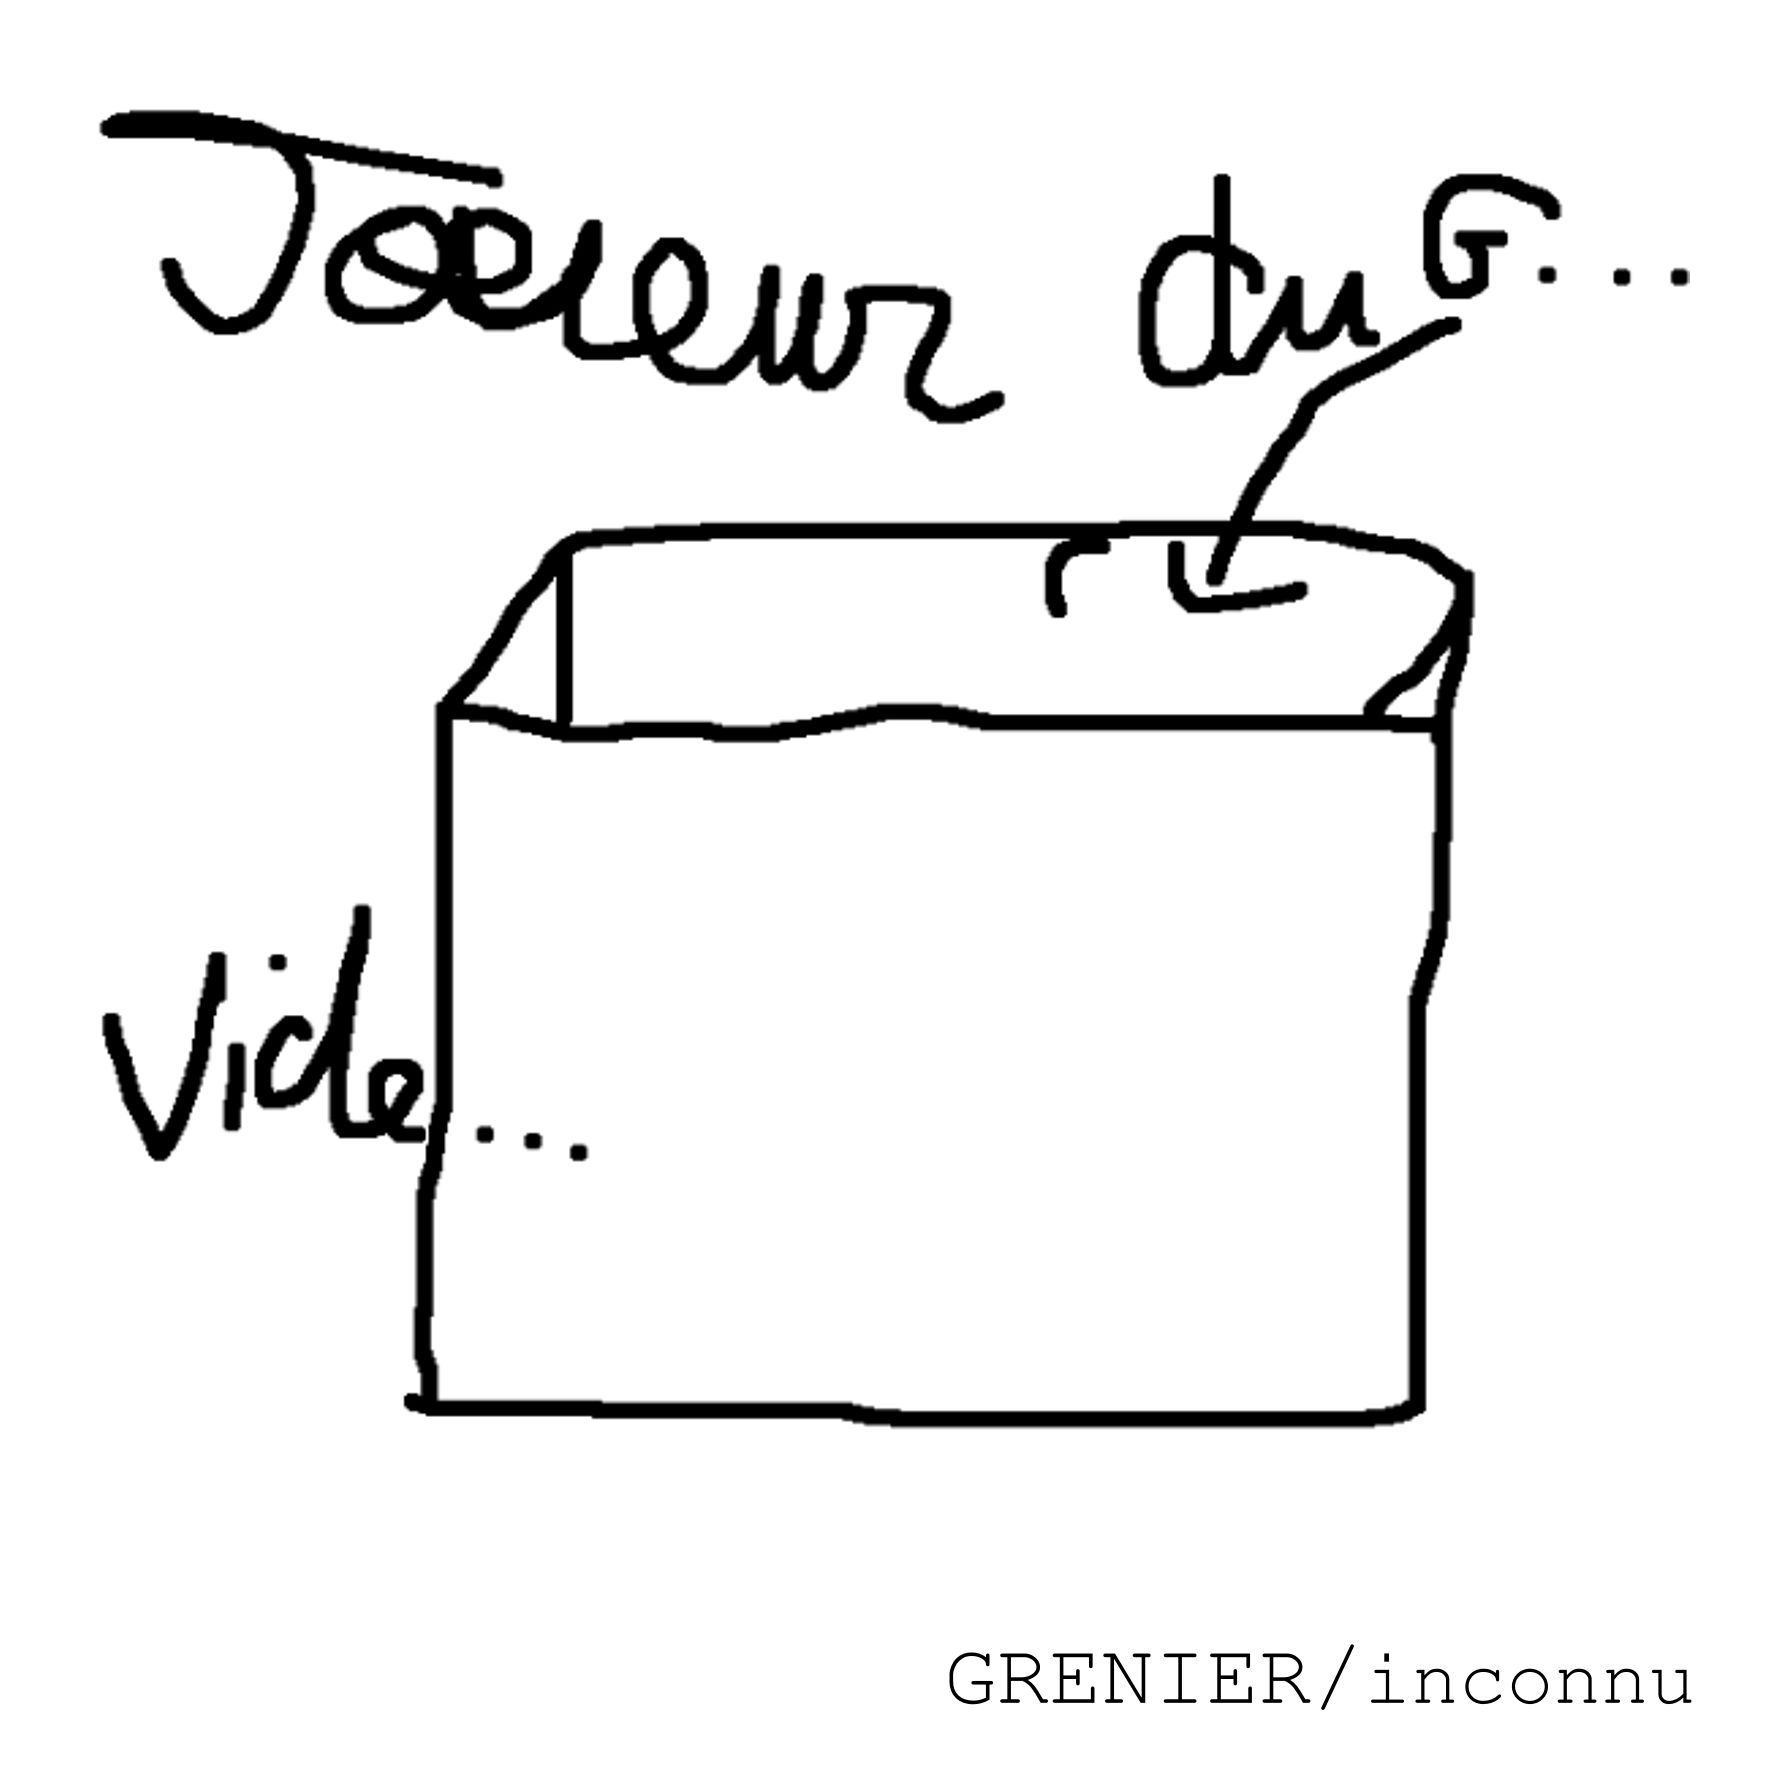 Joueur du G...
Vide...
GRENIER/inconnu